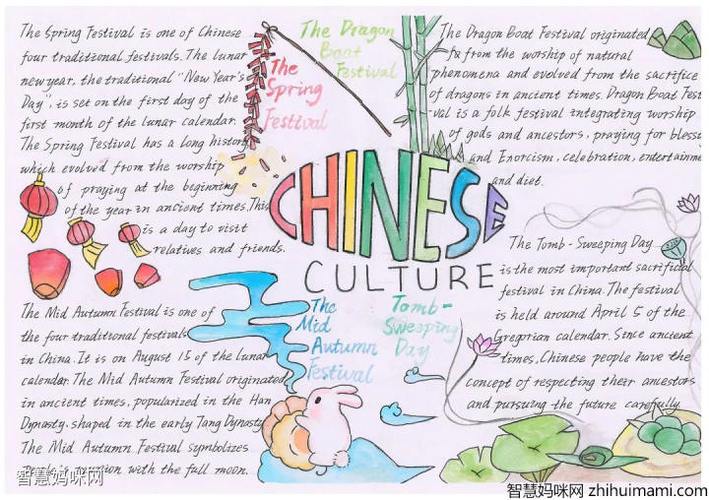 The Spring Festival is one of Chinese
four traditional festivals. The lunar
new year, the traditional "New Year's
Day", is set on the first day of the
first month of the lunar calendar.
The Spring Festival has a long history
which evolved from the worship
of praying at the beginning
of the year in ancient times. This
is a day to visit
relatives and friends.
The
Spring
Festival
The Dragon
Boat
Festival
The Dragon Boat Festival originated
from the worship of natural
phenomena and evolved from the sacrifice
of dragons in ancient times. Dragon Boat Fest
-val is a folk festival integrating worship
of gods and ancestors, praying for bless
and Enorcism, celebration, entertainme
and diet.
CHINESE
CULTURE
The Mid Autumn Festival is one of
the four traditional festivals
in China. It is on August 15 of the lunar
calendar. The Mid Autumn Festival originated
in ancient times, popularized in the Han
Dynasty, shaped in the early Tang Dynasty
The Mid Autumn Festival symbolizes
with the full moon.
The
Mid
Autumn
Festival
Tomb-
Sweeping
Day
The Tomb-Sweeping Day
is the most important sacrificial
festival in China. The festival
is held around April 5 of the
Gregorian calendar. Since ancient
times, Chinese people have the
concept of respecting their ancestors
and pursuing the future carefully.
智慧妈咪网
智慧妈咪网 zhihuimami.com